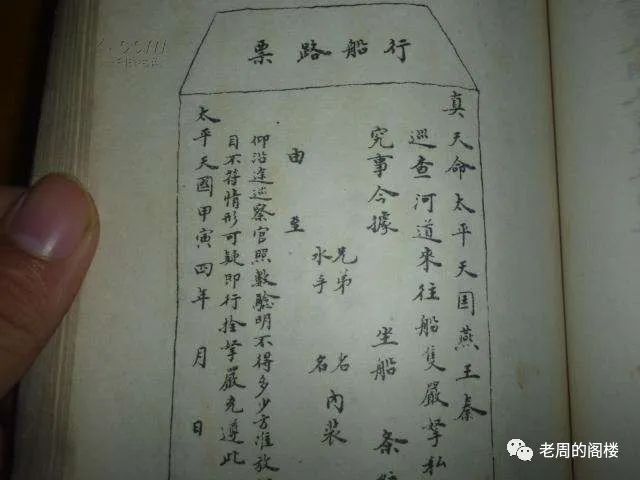 行船路票
真天命太平天囯燕王秦
巡查河道來往船隻嚴拏私
究事今據 坐船 条
兄弟 名
水手 名
內裝
由 至
仰沿途巡察官照數驗明不得多少方准放
目不符情形可疑即行拴拏嚴究遵此
太平天國甲寅四年 月 日
老周的阁楼